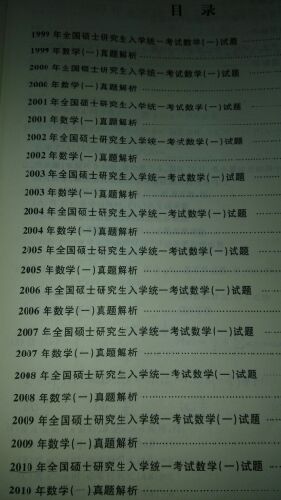 目 录
1999 年全国硕士研究生入学统一考试数学(一)试题
1999 年数学(一)真题解析
2000 年全国硕士研究生入学统一考试数学(一)试题
2000 年数学(一)真题解析
2001 年全国硕士研究生入学统一考试数学(一)试题
2001 年数学(一)真题解析
2002 年全国硕士研究生入学统一考试数学(一)试题
2002 年数学(一)真题解析
2003 年全国硕士研究生入学统一考试数学(一)试题
2003 年数学(一)真题解析
2004 年全国硕士研究生入学统一考试数学(一)试题
2004 年数学(一)真题解析
2005 年全国硕士研究生入学统一考试数学(一)试题
2005 年数学(一)真题解析
2006 年全国硕士研究生入学统一考试数学(一)试题
2006 年数学(一)真题解析
2007 年全国硕士研究生入学统一考试数学(一)试题
2007 年数学(一)真题解析
2008 年全国硕士研究生入学统一考试数学(一)试题
2008 年数学(一)真题解析
2009 年全国硕士研究生入学统一考试数学(一)试题
2009 年数学(一)真题解析
2010 年全国硕士研究生入学统一考试数学(一)试题
2010 年数学(一)真题解析